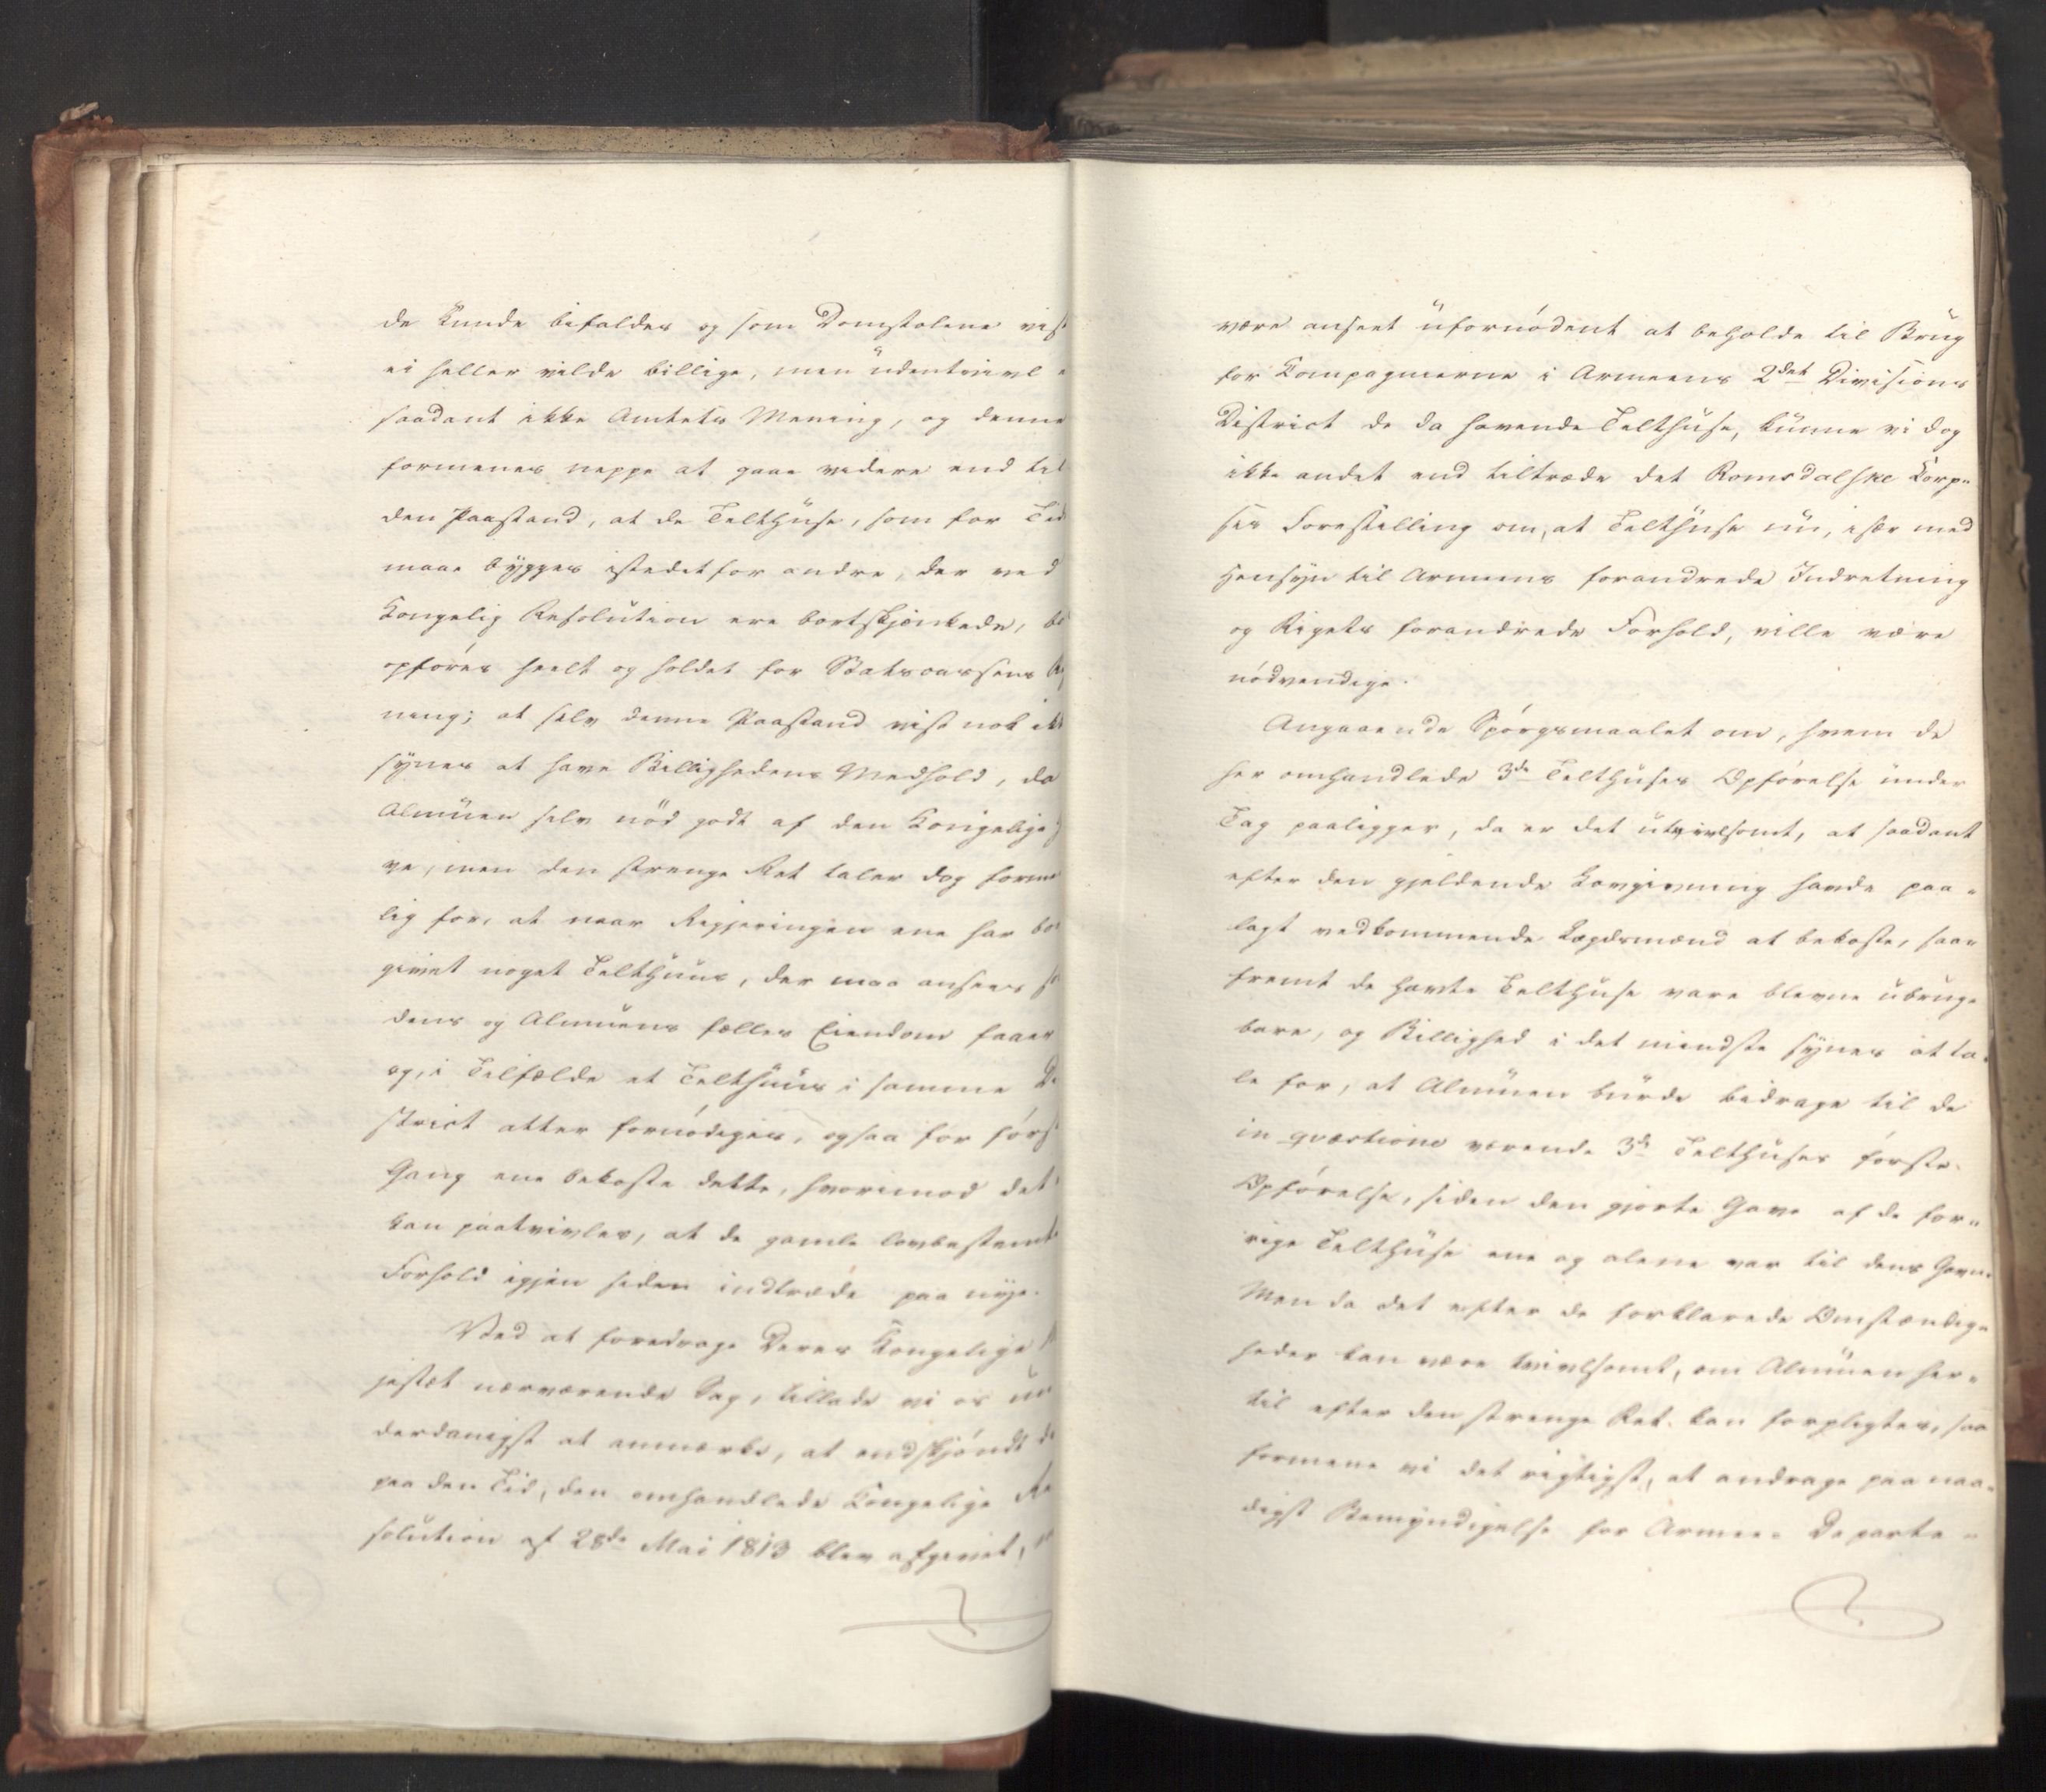 de kunde bifaldes og som Domstolene vist
ei heller vilde billige, men udentvivl e
saadant ikke Amtets Mening, og denne
formenes neppe at gaae videre end til
den Paastand, at de Telthuse, som for Tid
maae bygges istedetfor andre, der ved
Kongelig Resolution ere bortskjenkede, bø
opføres heelt og holdet for Statscassens Reg
ning; at selv denne Paastand vist nok ikke
synes at have Billighedens Medhold, da
Almuen selv nød godt af den Kongelige G
ve, men den strenge Ret taler dog forme
lig for, at naar Regjeringen ene har bor
givet noget Telthuus, der maa ansees so
dens og Almuens fælles Eiendom faaer
og, i Tilfælde et Telthuus i samme Di
strict atter fornødiges, ogsaa for først
Gang ene bekoste dette, hvorimod det
kan paatvivles, at de gamle lovbestemte
Forhold igjen siden indtræde paa nye.
Ved at foredrage Deres Kongelige M
jestæt nærværende Sag, tillade vi os un
derdanigst at anmærke, at endskjøndt de
paa den Tid, den omhandlede Kongelige Re
solution af 28de Mai 1813 blev afgivet,
være anseet ufornødent at beholde til Brug
for Compagnierne i Armeens 2det Divisions
District de da havende Telthuse, kunne vi dog
ikke andet end tiltræde det Romsdalske Corp-
ses Forestilling om, at Telthuse nu, især med
Hensyn til Armeens forandrede Indretning
og Rigets forandrede Forhold, ville være
nødvendige.
Angaaende Spørgsmaalet om, hvem de
her omhandlede 3de Telthuses Opførelse under
Tag paaligger, da er det utvivlsomt, at saadant
efter den gjeldende Lovgivning havde paa-
lagt vedkommende Lægdsmænd at bekoste, saa-
fremt de havte Telthuse vare blevne ubruge
bare, og Billighed i det mindste synes at ta-
le for, at Almuen burde bidrage til de
in qvæstione værende 3de Telthuses første
Opførelse, siden den gjorte Gave af de for-
rige Telthuse ene og alene var til dens Gavn.
Men da det efter de forklarede Omstændig-
heder kan være tvivlsomt, om Almuen her-
til efter den strenge Ret kan forpligtes, saa
formene vi det rigtigst, at andrage paa naa-
digst Bemyndigelse for Armee-Departe-